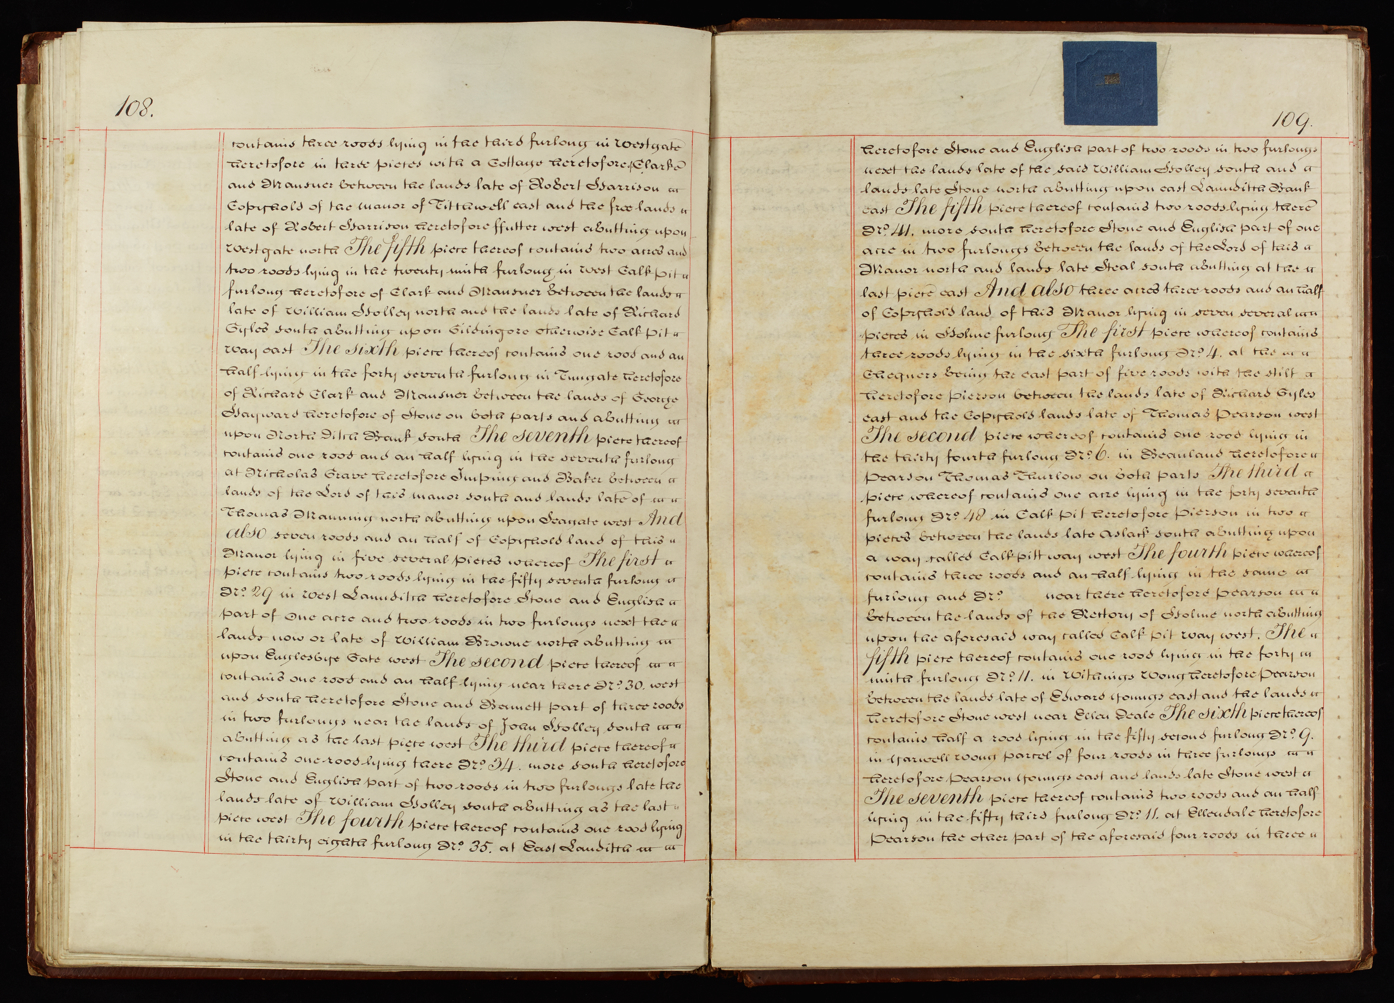 108.
contains three roods lying in the third furlong in Westgate
heretofore in three pieces with a Cottage heretofore Clarke
and Mausner between the lands late of Robert Harrison
Copyhold of the manor of Tittswell east and the free lands
late of Robert Harrison heretofore ffutter west abutting upon
Westgate north The fifth piece thereof contains two acres and
two roods lying in the twenty ninth furlong in West Calk Pit
furlong heretofore of Clark and Mausner between the lands
late of William Holley north and the lands late of Richard
Gyles south abutting upon Gildingore otherwise Calk Pit
way east The sixth piece thereof contains one rood and an
half lying in the forty seventh furlong in Tungate heretofore
of Richard Clark and Mausner between the lands of George
Hayward heretofore of Stone on both parts and abutting
upon North Ditch Bank south The seventh piece thereof
contains one rood and an half lying in the seventh furlong
at Nicholas Grave heretofore Imping and Baker between
lands of the Lord of this manor south and lands late of
Thomas Manning north abutting upon Seagate west And
also seven roods and an half of Copyhold land of this
Manor lying in five several pieces whereof The first
piece contains two roods lying in the fifty seventh furlong
No. 29 in West Laundith heretofore Stone and English
part of One acre and two roods in two furlongs next the
lands now or late of William Browne north abutting
upon Englesbye Gate west The second piece thereof
contains one rood and an half lying near there No. 30. west
and south heretofore Stone and Bennett part of three roods
in two furlongs near the lands of John Holley south
abutting as the last piece west The third piece thereof
contains one rood lying there No. 34. more south heretofore
Stone and English part of two roods in two furlongs late the
lands late of William Holley south abutting as the last
piece west The fourth piece thereof contains one rood lying
in the thirty eighth furlong No. 35. at East Laundith
109.
heretofore Stone and English part of two roods in two furlongs
next the lands late of the said William Holley south and
lands late Stone north abutting upon east Laundith Bank
east The fifth piece thereof contains two roods lying there
No. 41. more south heretofore Stone and English part of one
acre in two furlongs between the lands of the Lord of this
Manor north and lands late Steal south abutting at the
last piece east And also three acres three roods and an half
of Copyhold land of this Manor lying in seven several
pieces in Holme furlong The first piece whereof contains
three roods lying in the sixth furlong No. 4. at the
Chequers being the east part of five roods with the stilt
heretofore Pierson between the lands late of Richard Gyles
east and the Copyhold lands late of Thomas Pearson west
The second piece whereof contains one rood lying in
the thirty fourth furlong No. 6. in Beanland heretofore
Pearson Thomas Thurlow on both parts The third
piece whereof contains one acre lying in the forty seventh
furlong No. 48 in Calk Pit heretofore Pierson in two
pieces between the lands late Aslack south abutting upon
a way called Calk pitt way west The fourth piece whereof
contains three roods and an half lying in the same
furlong and No. near there heretofore Pearson
between the lands of the Rectory of Holme north abutting
upon the aforesaid way called Calk Pit way west. The
fifth piece thereof contains one rood lying in the forty
ninth furlong No. 11. in Withings Wong heretofore Pearson
between the lands late of Edward Youngs east and the lands
heretofore Stone west near Ellen Deale The sixth piece thereof
contains half a rood lying in the fifty second furlong No. 9.
in Yarwell Wong parcel of four roods in three furlongs
heretofore Pearson Youngs east and lands late Stone west
The seventh piece thereof contains two roods and an half
lying in the fifty third furlong No. 11. at Ellendale heretofore
Pearson the other part of the aforesaid four roods in three